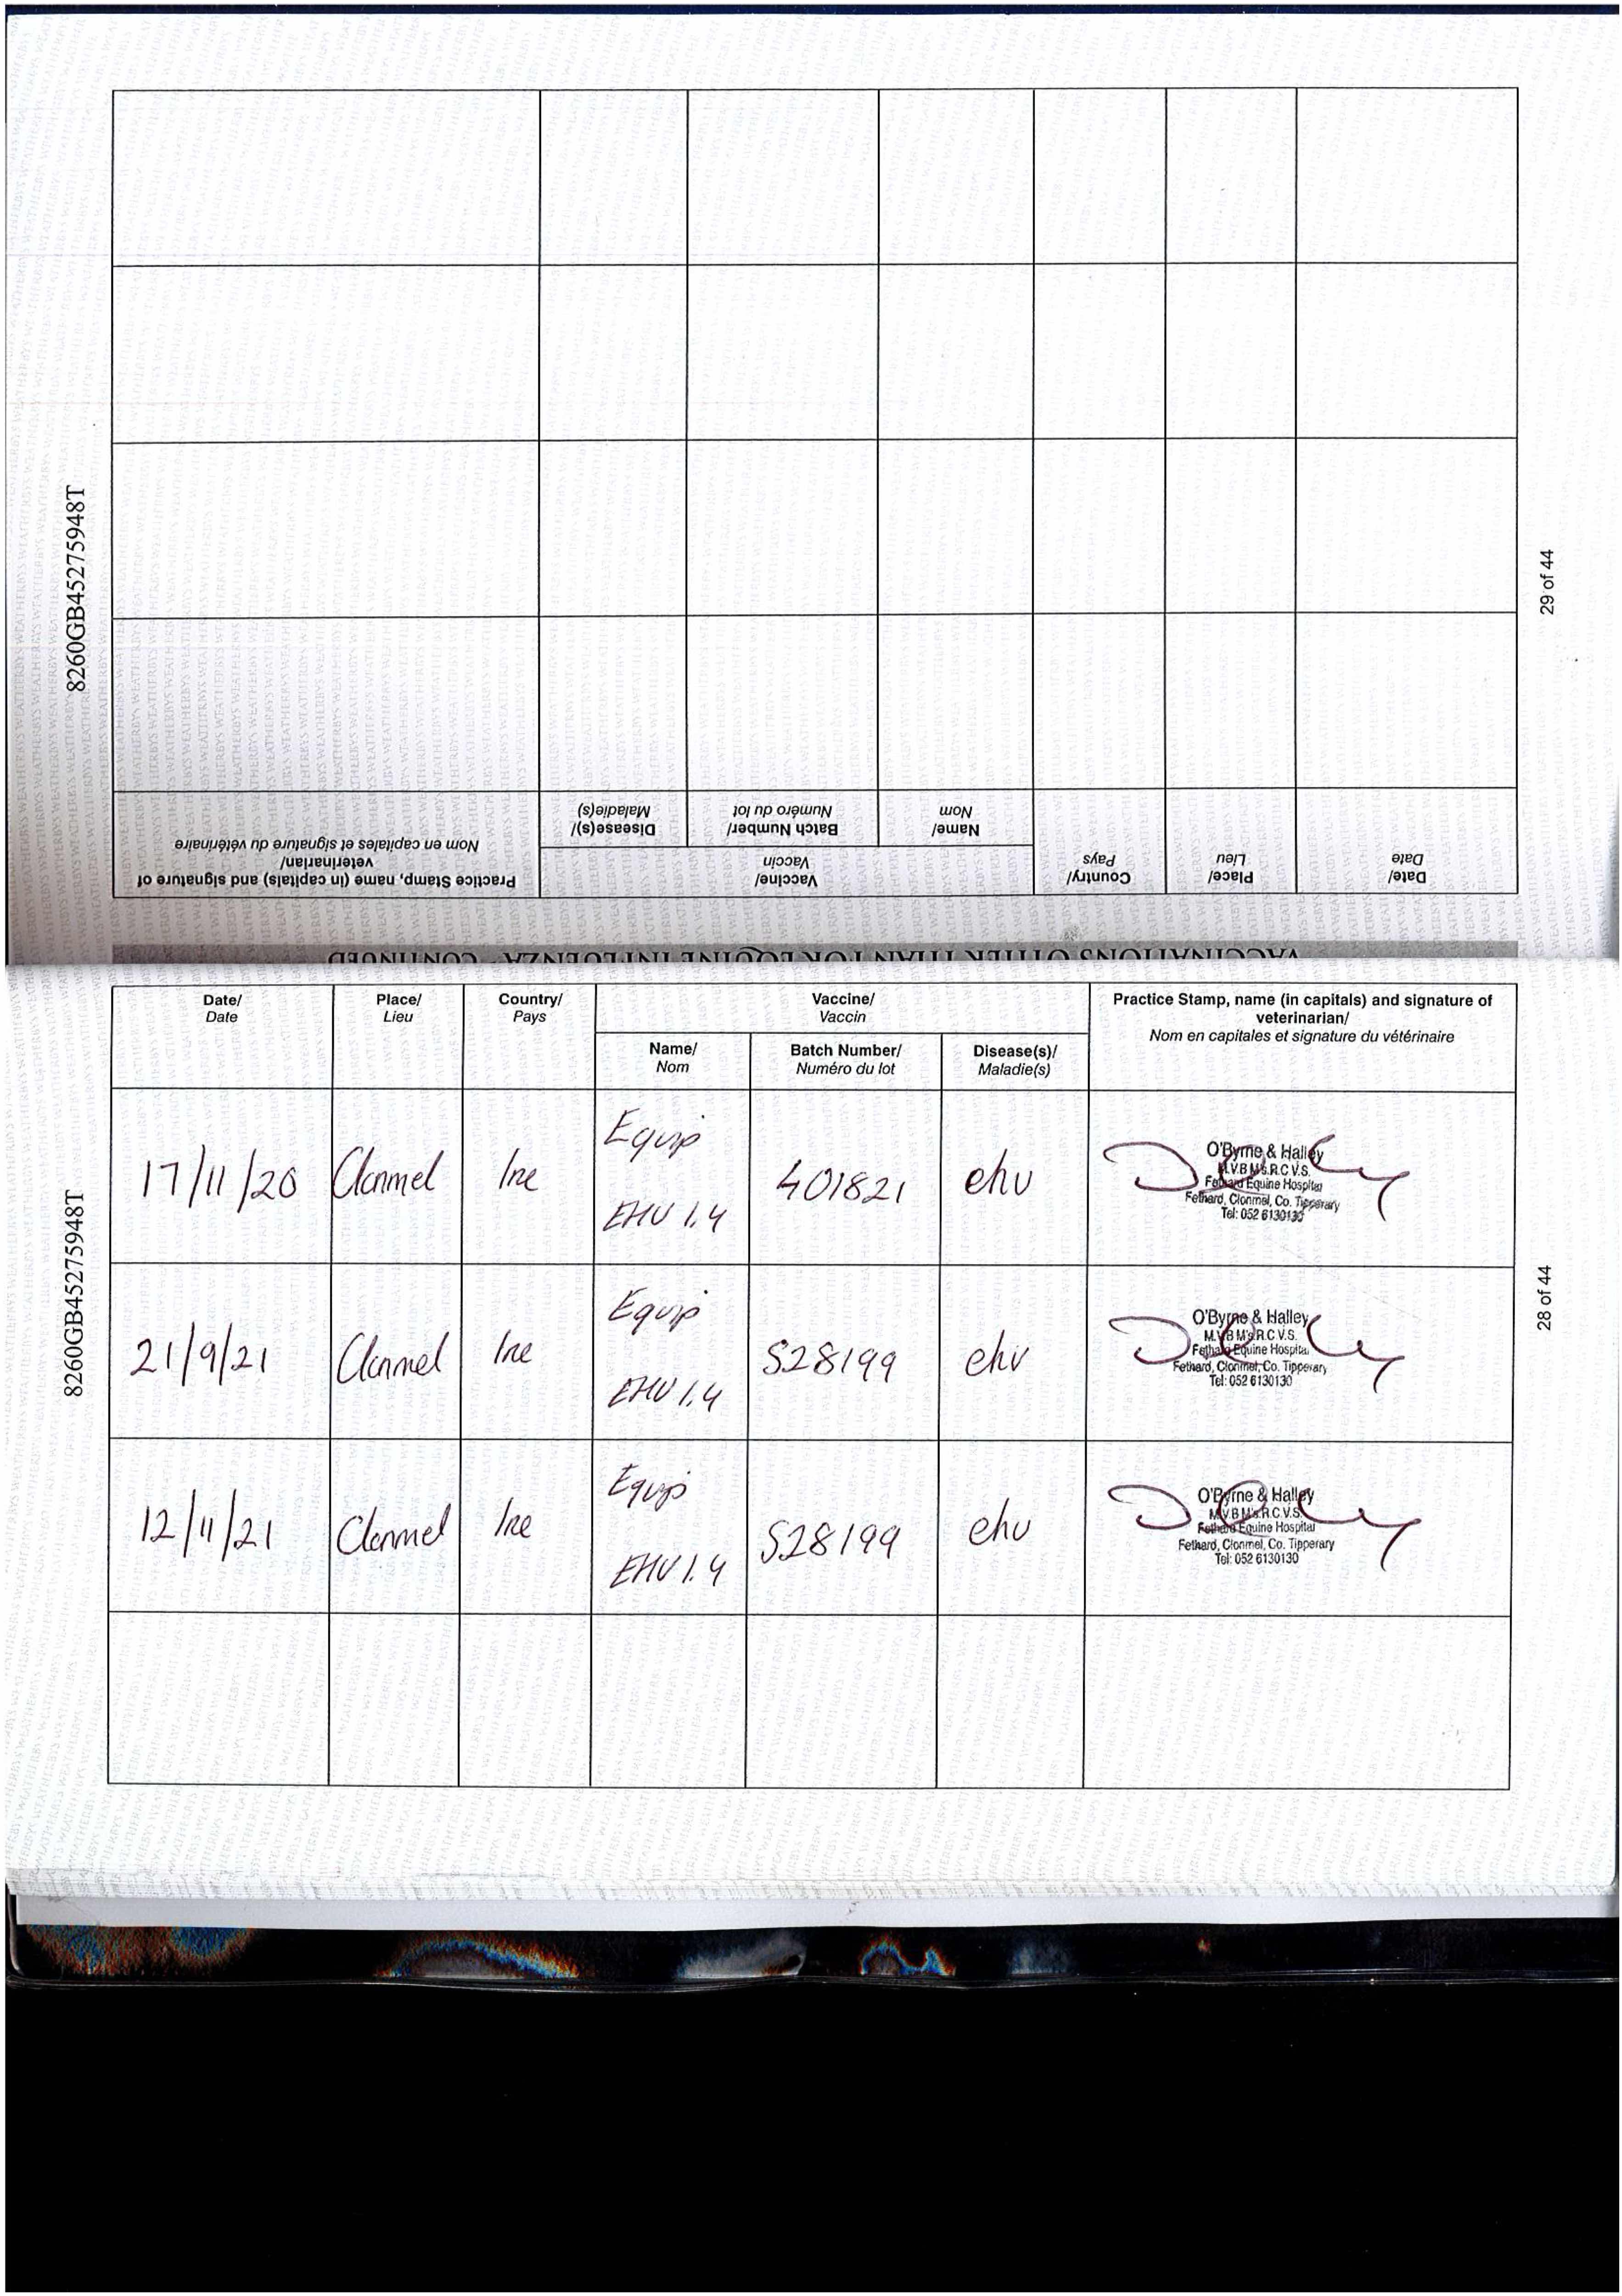 8260GB45275948T
29 of 44
VACCINATIONS OTHER THAN FOR EQUINE INFLUENZA - CONTINUED
Date/
Date
Place/
Lieu
Country/
Pays
Vaccine/
Vaccin
Name/
Nom
Batch Number/
Numéro du lot
Disease(s)/
Maladie(s)
Practice Stamp, name (in capitals) and signature of
veterinarian/
Nom en capitales et signature du vétérinaire
8260GB45275948T
28 of 44
Date/
Date
Place/
Lieu
Country/
Pays
Vaccine/
Vaccin
Name/
Nom
Batch Number/
Numéro du lot
Disease(s)/
Maladie(s)
Practice Stamp, name (in capitals) and signature of
veterinarian/
Nom en capitales et signature du vétérinaire
17/11/20 Clonmel Ire Equip
EHV 1.4
401821 ehv
O'Byrne & Halley
M.V.B M's.R.C.V.S.
Fethard Equine Hospital
Fethard, Clonmel, Co. Tipperary
Tel: 052 6130130
21/9/21 Clonmel Ire Equip
EHV 1.4
528199 ehv
O'Byrne & Halley
M.V.B M's.R.C.V.S.
Fethard Equine Hospital
Fethard, Clonmel, Co. Tipperary
Tel: 052 6130130
12/11/21 Clonmel Ire Equip
EHV 1.4
528199 ehv
O'Byrne & Halley
M.V.B M's.R.C.V.S.
Fethard Equine Hospital
Fethard, Clonmel, Co. Tipperary
Tel: 052 6130130